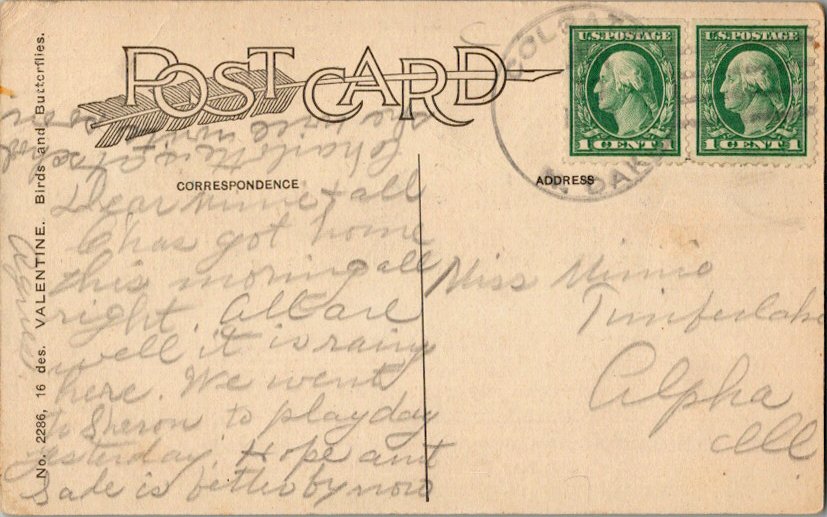 POST CARD
COLGATE
N. DAK.
U.S. POSTAGE
1 CENT 1
U.S. POSTAGE
1 CENT 1
CORRESPONDENCE
ADDRESS
Dear Minnie + all
Chas got home
this morning all
right. All are
well it is rainy
here. We went
to Sharon to playday
yesterday. Hope aunt
Sade is better by now
Agnes.
Miss Minnie
Timberlake
Alpha
Ill
No. 2286, 16 des. VALENTINE. Birds and Butterflies.